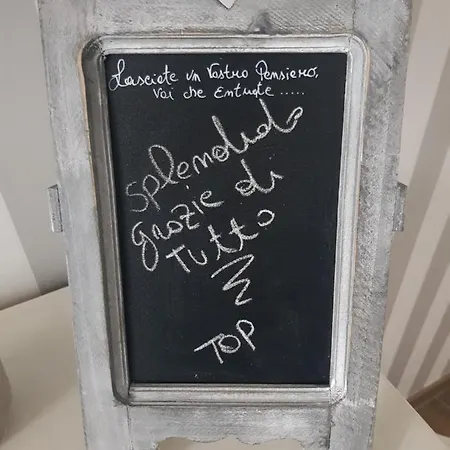 Lasciate un Vostro Pensiero,
Voi che Entrate .....
Splendido
grazie di
Tutto
TOP